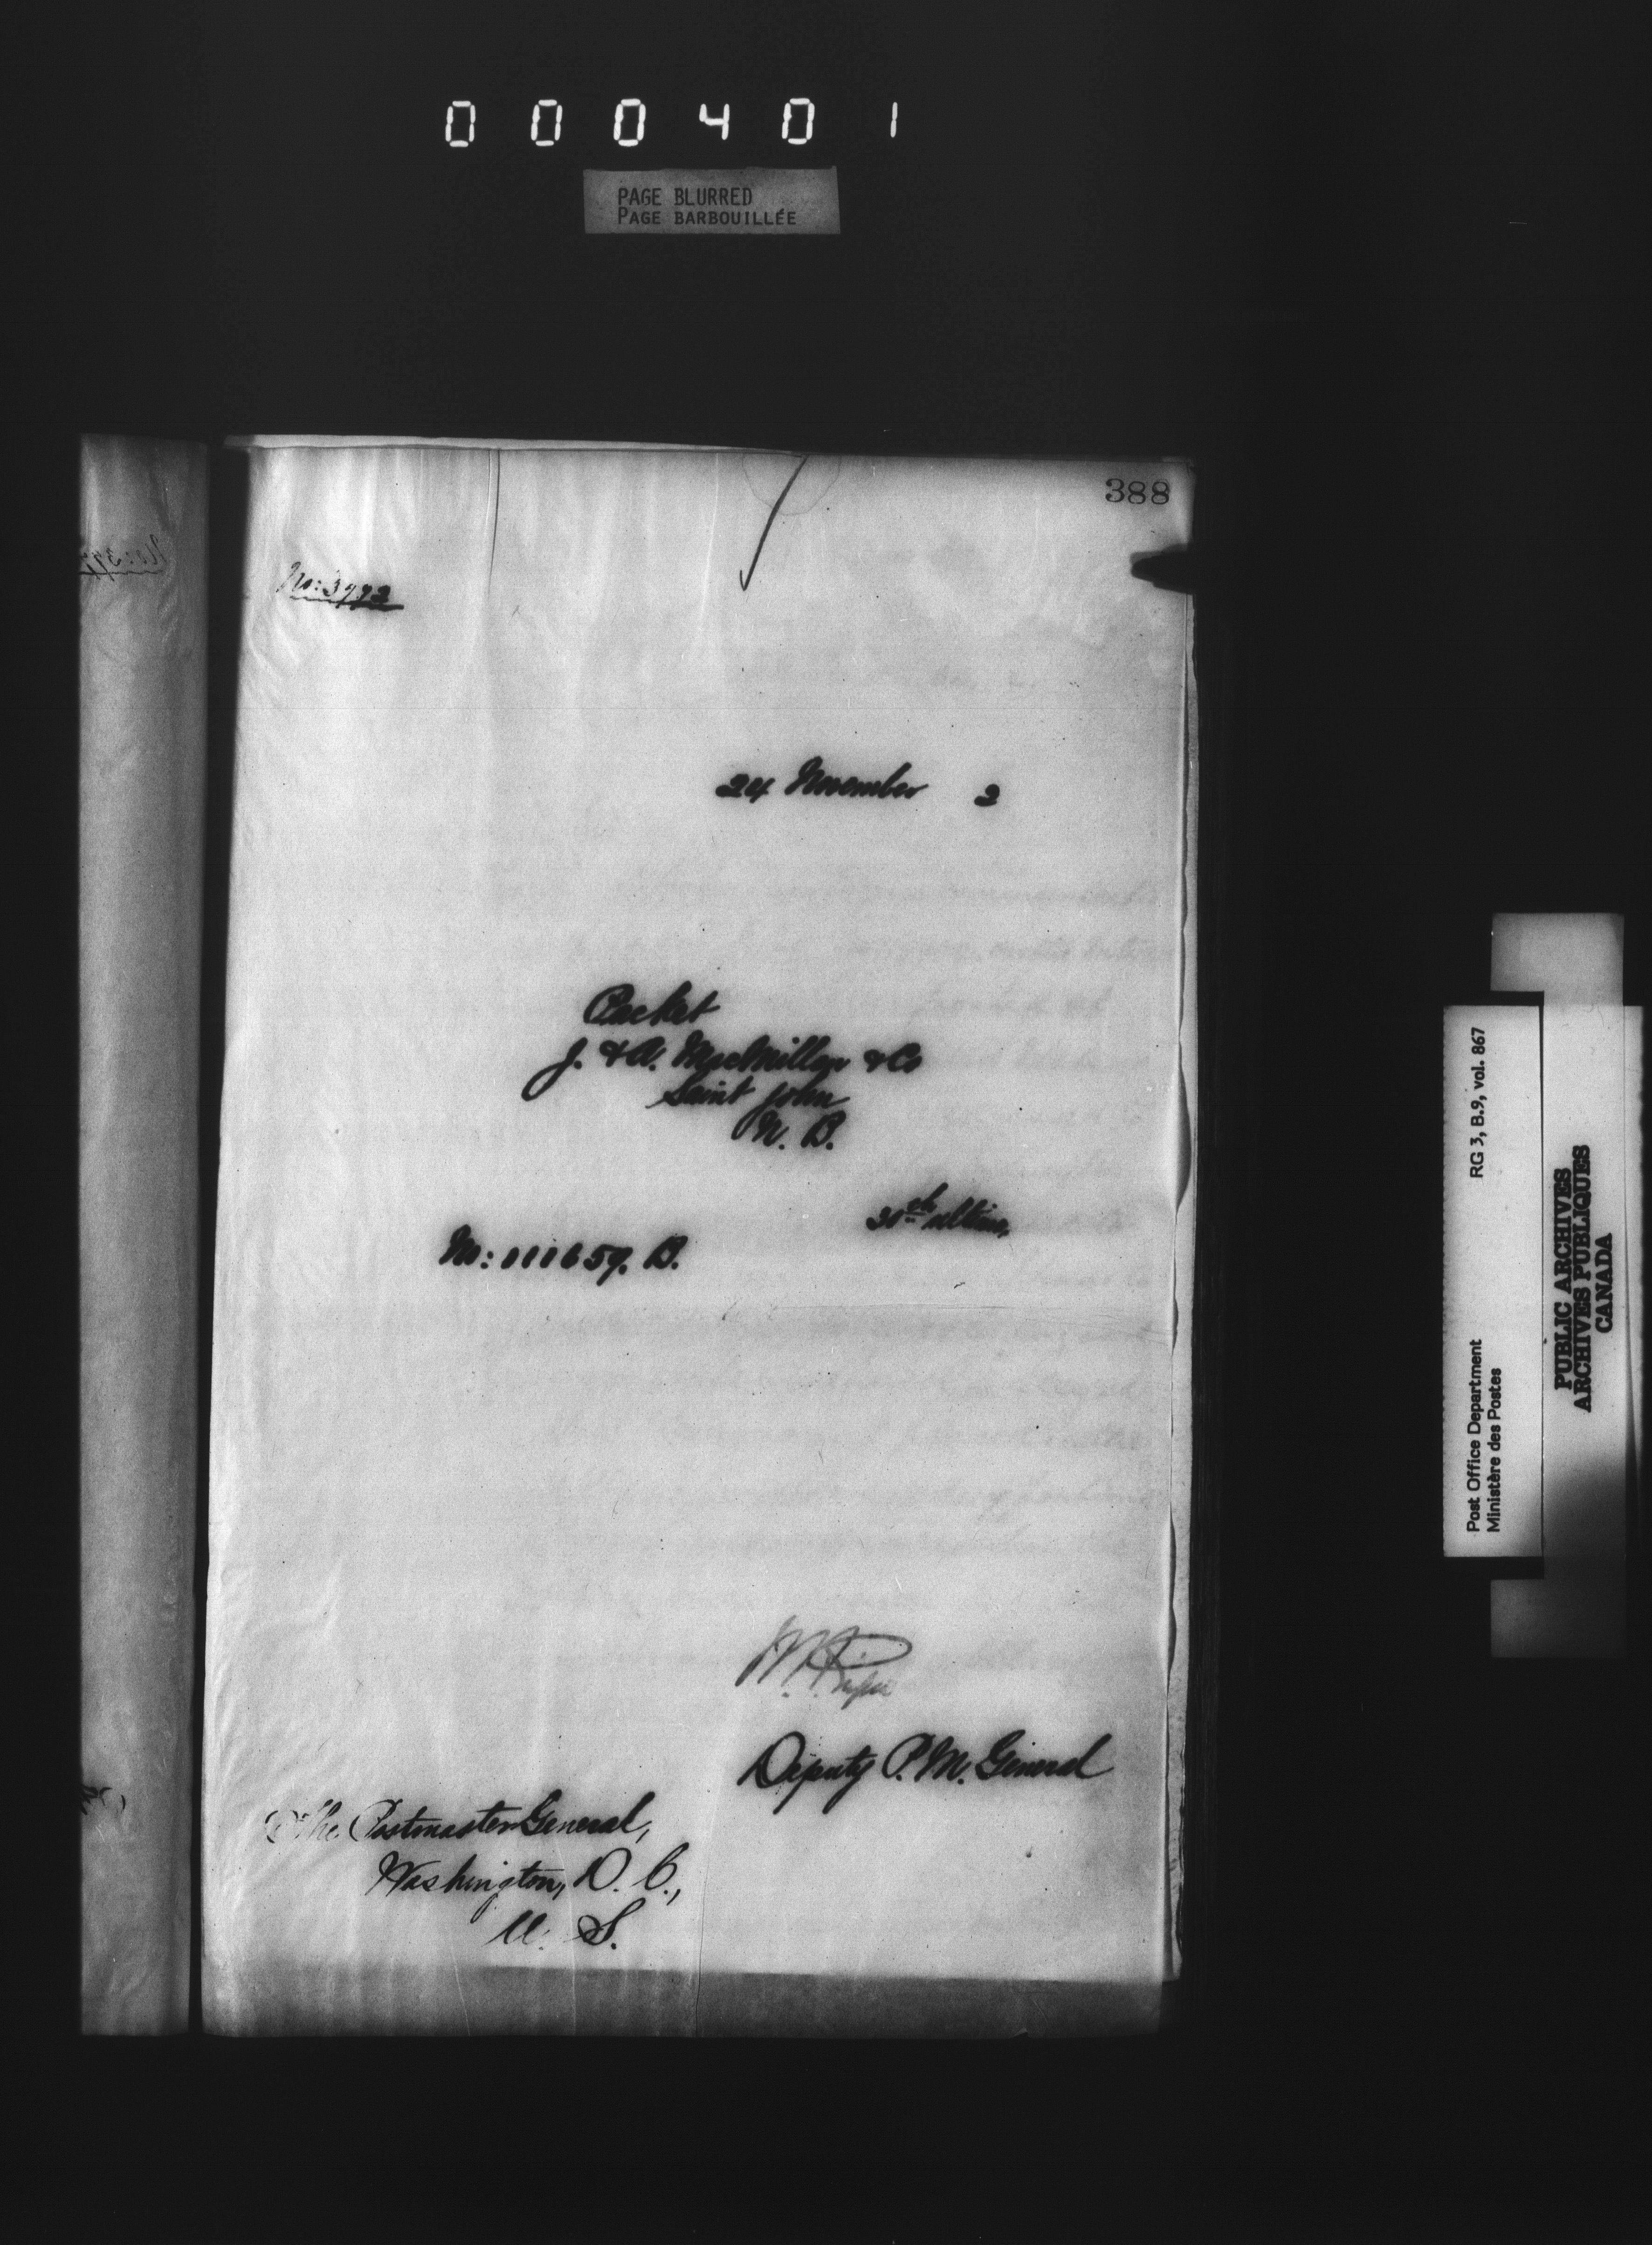 000401
PAGE BLURRED
PAGE BARBOUILLÉE
388
No: 3993
24 November 2
Packet
J. & A. MacMillan & Co
Saint John
N. B.
31st ultimo,
No: 111659. B.
Deputy P. M. General
The Postmaster General,
Washington, D. C.,
U. S.
Post Office Department RG 3, B.9, vol. 867
Ministère des Postes
PUBLIC ARCHIVES
ARCHIVES PUBLIQUES
CANADA